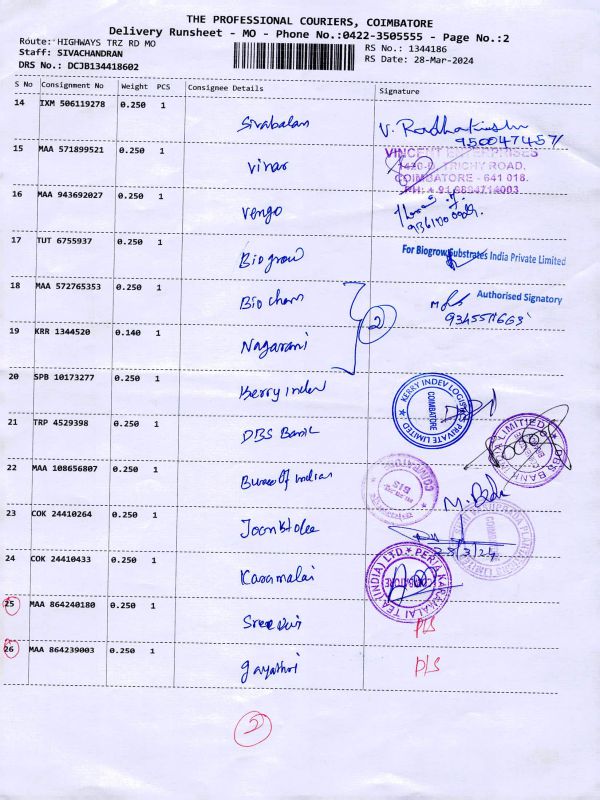 THE PROFESSIONAL COURIERS, COIMBATORE
Delivery Runsheet - MO - Phone No.:0422-3505555 - Page No.:2
Route: HIGHWAYS TRZ RD MO
RS No.: 1344186
Staff: SIVACHANDRAN
RS Date: 28-Mar-2024
DRS No.: DCJB134418602
S No Consignment No Weight PCS Consignee Details Signature
14 IXM 506119278 0.250 1 Sivabalan V. Radhakrishn
9500474571
15 MAA 571899521 0.250 1 Vinar
VINCENT ENTERPRISES
1426-D, TRICHY ROAD,
COIMBATORE - 641 018.
PH: + 91 9894714003
16 MAA 943692027 0.250 1 Vengo
17 TUT 6755937 0.250 1 Biogrow For Biogrow Substrates India Private Limited
18 MAA 572765353 0.250 1 Bio Authorised Signatory
2
19 KRR 1344520 0.140 1 Nagarani
20 SPB 10173277 0.250 1 Kerry Indev KERRY INDEV LOGISTICS PRIVATE LIMITED COIMBATORE
21 TRP 4529398 0.250 1 DBS Bank DBS BANK LIMITED
22 MAA 108656807 0.250 1 Bureau Of Indian BIS
23 COK 24410264 0.250 1
28/3/24
24 COK 24410433 0.250 1 Karamalai PERIA KARAMALAI TEA (INDIA) LTD. COIMBATORE
25 MAA 864240180 0.250 1 Sree P/S
26 MAA 864239003 0.250 1 gayathri P/S